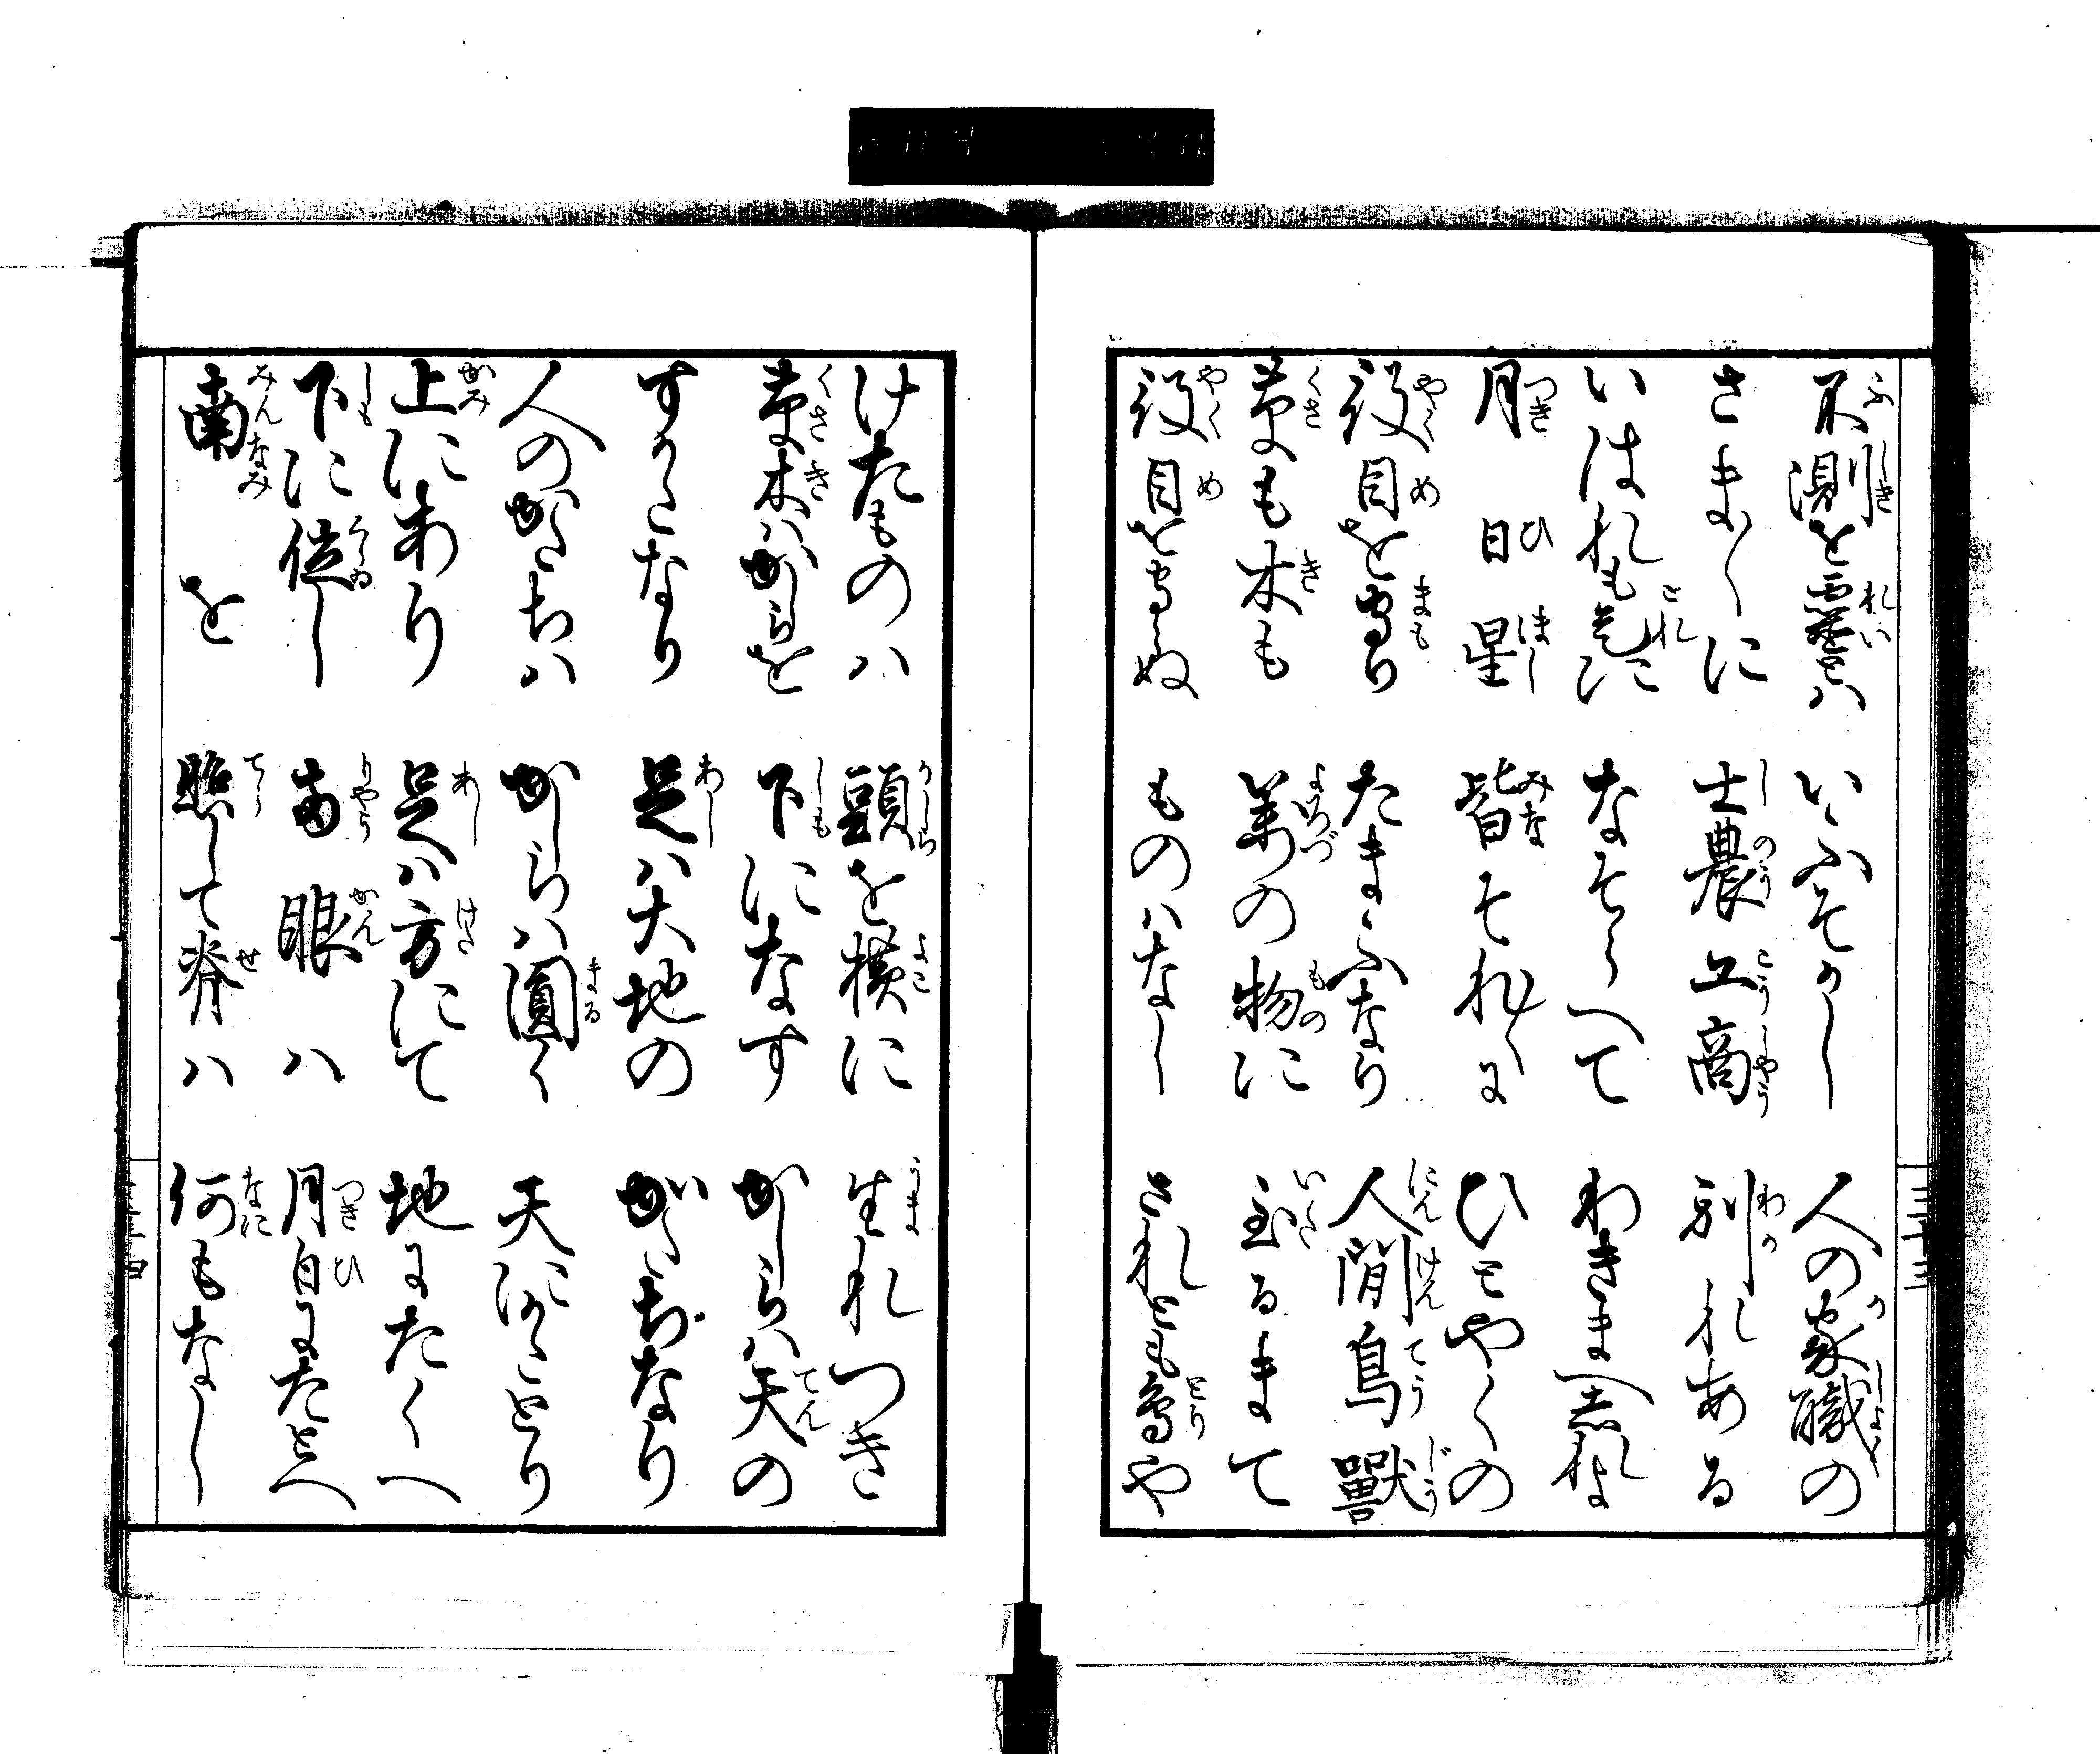 不測を靈とハ いふそかし 人の家職の
さま〲に 士農工商 別れある
いはれも是に なそらへて わきまへ志れよ
月日星 皆それ〱に ひとやくの
役目を守り たまふなり 人間鳥獸
草も木も 萬の物に 至るまて
役目を守らぬ ものハなし されとも鳥や
けたものハ 頭を横に 生れつき
草木ハかしらを 下になす かしらハ天の
すかたなり 足ハ大地の かたちなり
人のかたちハ かしらハ圓く 天にかたとり
上にあり 足ハ方にて 地にたくへ
下に位し 両眼ハ 月日にたとへ
南を 照して脊ハ 何もなし
三十三